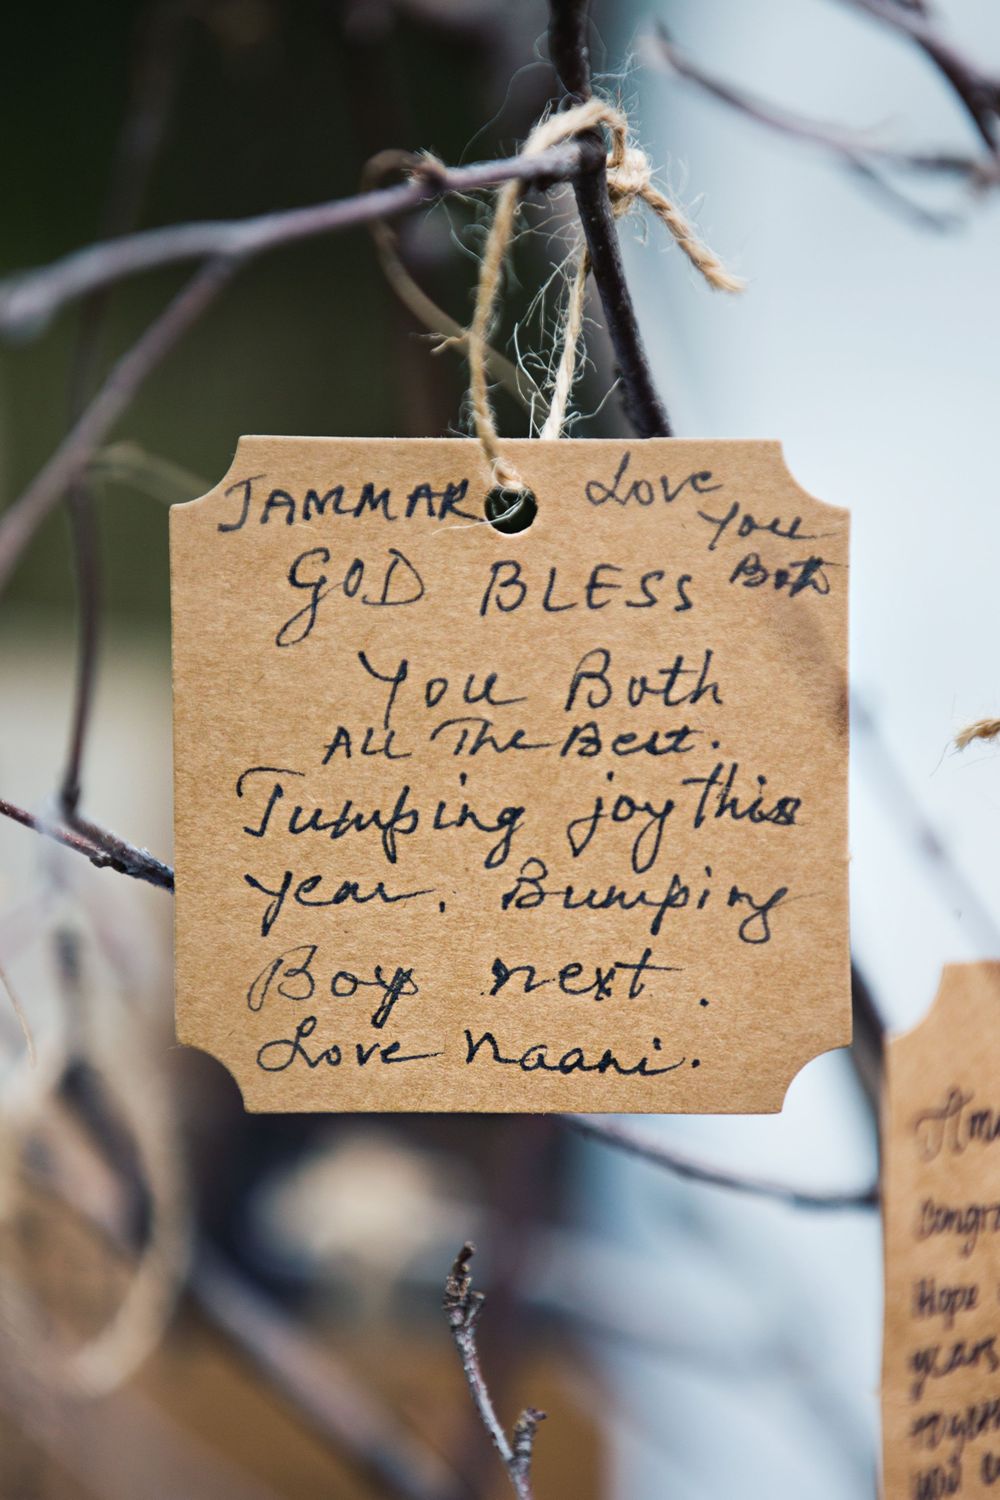 JAMMAR
Love
You
Both
GOD BLESS
You Both
All The Best.
Jumping joy this
year. Bumping
Boy next.
Love Naani.
Hope
years